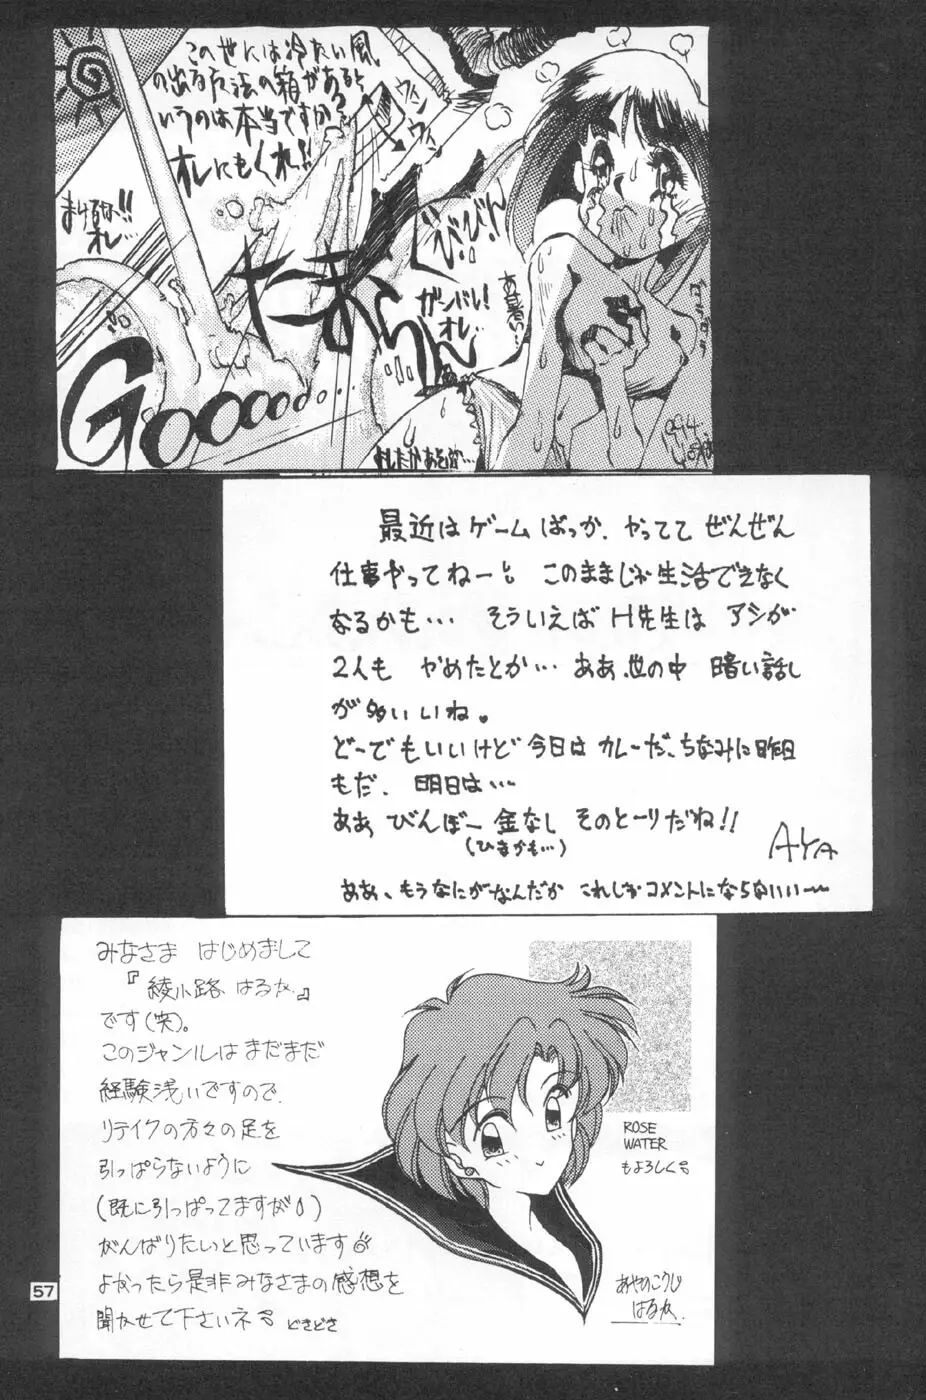 この世には冷たい風
の出る方法の箱があると
いうのは本当ですか?
オレにもくれ!!
ウィン
ウィン
まけるな!!
オレ…
びんびん!!
ガンバレ!
オレ…
あ
暑い…
たまらん…
Goooooo…
'94
最近はゲームばっか、やってて ぜんぜん
仕事やってねーもし このままじゃ生活できなく
なるかも… そういえば H先生は アシが
2人も やめたとか… ああ、世の中 暗い話し
が多いいね。
どーでもいいけど今日は カレーだ、ちなみに昨日
もだ、明日は…
ああ びんぼー金なし そのとーりだね!!
(ひまかも…)
AYA
ああ、もうなにがなんだか これじゃコメントにならないいー
みなさま はじめまして
『綾小路 はるか』
です(笑)。
このジャンルはまだまだ
経験浅いですので、
リテイクの方々の足を
引っぱらないように
(既に引っぱってますが)
がんばりたいと思っています
よかったら是非みなさまの感想を
聞かせて下さいネ どきどき
ROSE
WATER
もよろしく
あやのこうじ
はるか.
57